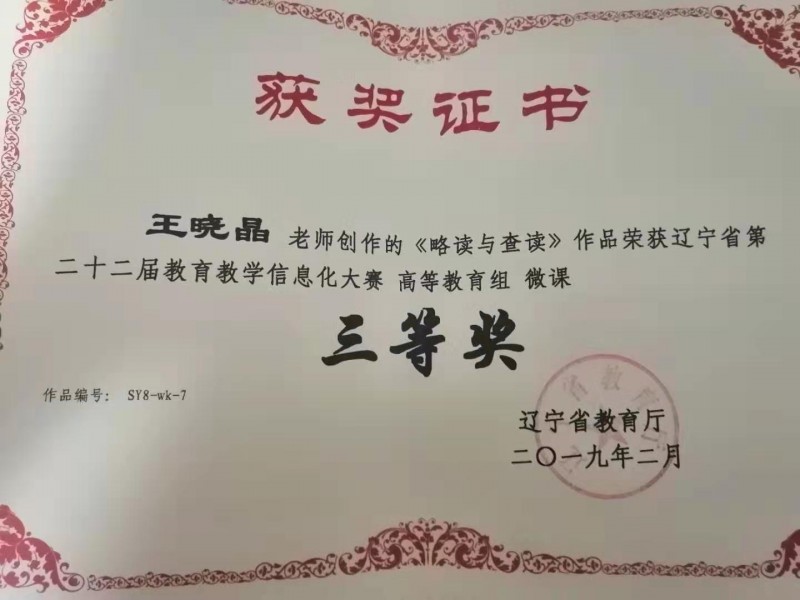 获奖证书
王晓晶 老师创作的《略读与查读》作品荣获辽宁省第
二十二届教育教学信息化大赛 高等教育组 微课
三等奖
作品编号： SY8-wk-7
辽宁省教育厅
二〇一九年二月